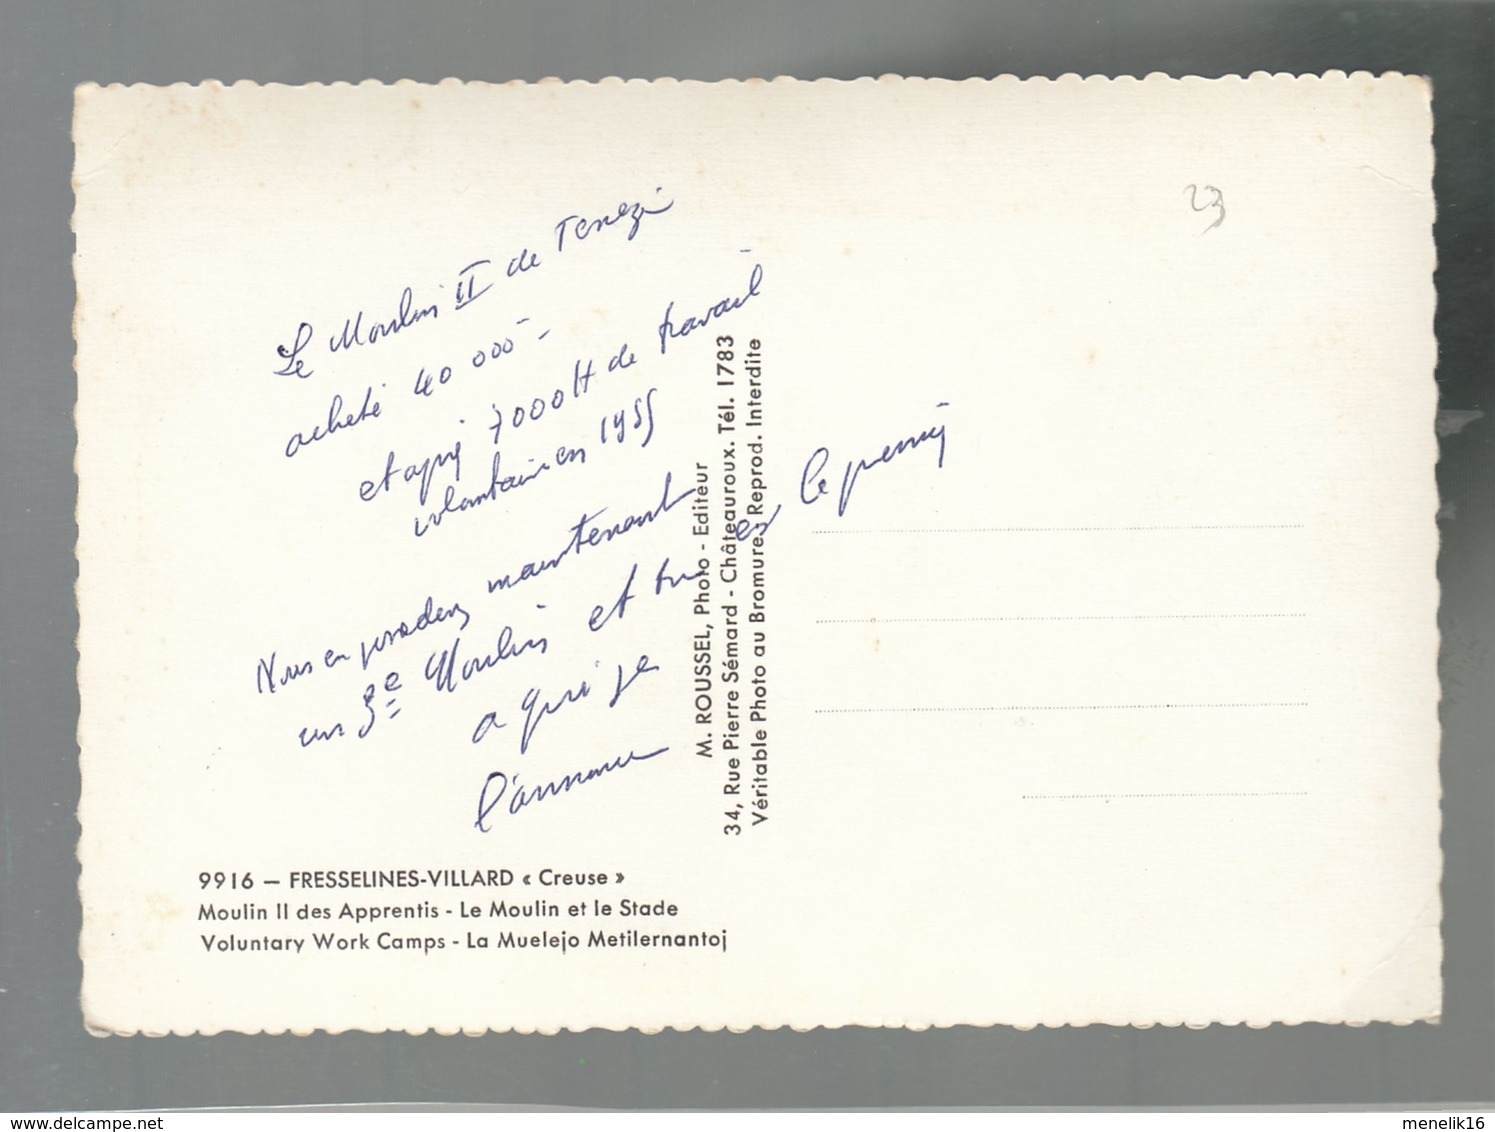 Le Moulin II de
acheté 40 000 -
et après 7000 H de travail
volontaire en 1955
Nous en possédons maintenant
un 3e Moulin et tu es le premier
a qui je
l'annonce
23
M. ROUSSEL, Photo - Editeur
34, Rue Pierre Sémard - Châteauroux. Tél. 1783
Véritable Photo au Bromure. Reprod. Interdite
9916 — FRESSELINES-VILLARD « Creuse »
Moulin II des Apprentis - Le Moulin et le Stade
Voluntary Work Camps - La Muelejo Metilernantoj
www.delcampe.net
menelik16